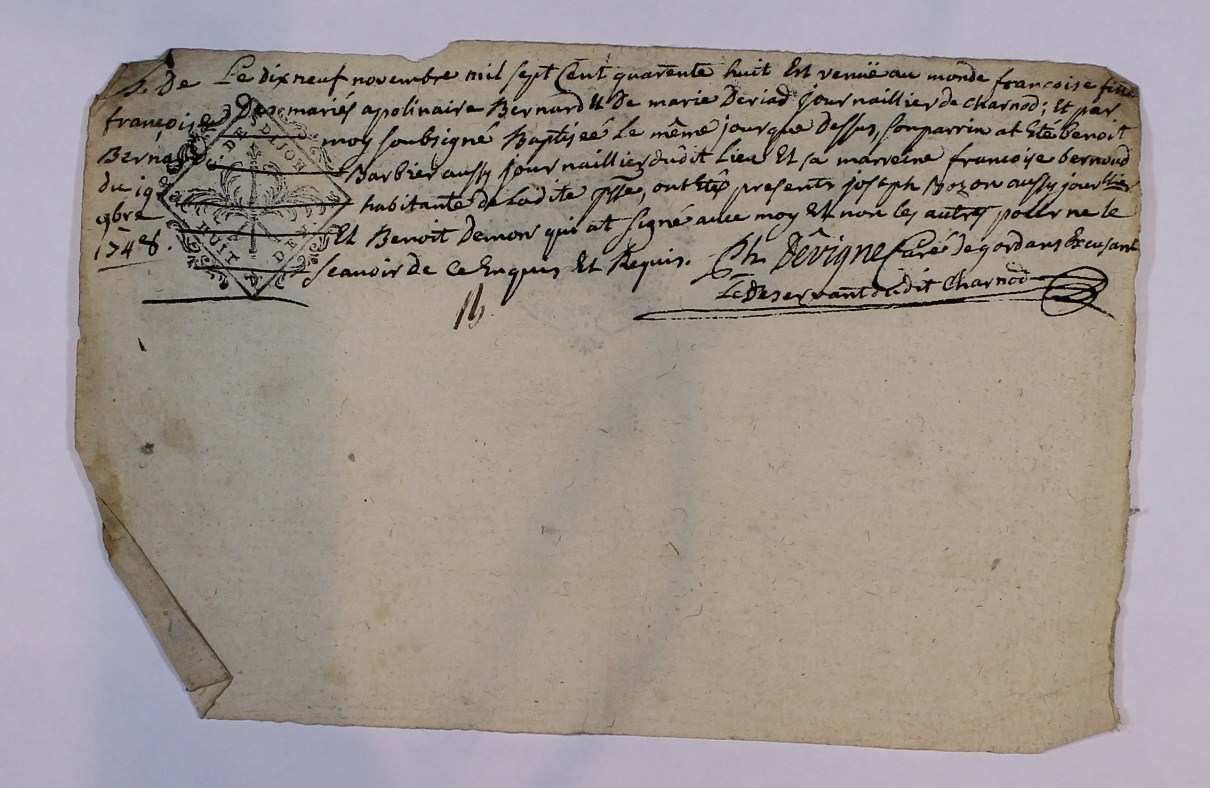 B. De
françoise
Bernard
du 19
9bre
1748
Le dix neuf novembre mil sept Cent quarente huit Est venuë au monde francoise fille
Des mariés apolinaire Bernard & De marie Deriad journaillier de Charnod; Et par
moy soubsigné Baptiseé Le même jour que Dessus, son parrin at Eté benoit
Barbier aussy journaillier dudit Lieu Et sa marreine francoise bernoud
habitante de Ladite psse, ont Eté presents joseph Bozon aussy jourlier
Et Benoit Demon qui at signé avec moy Et non les autres pour ne le
sçauoir de ce Enquis Et Requis. Ph. Dêvigne Curé de gordans Excusant
Le Deservant dudit Charnod
DE DIJON